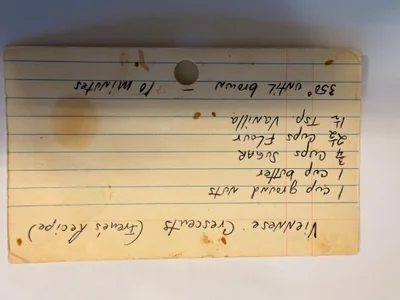 Viennese Crescents (Irene's Recipe)
1 cup ground nuts
1 cup butter
3/4 cups SUGAR
2 1/2 cups Flour
1 1/2 Tsp. Vanilla
350° until brown - 10 minutes